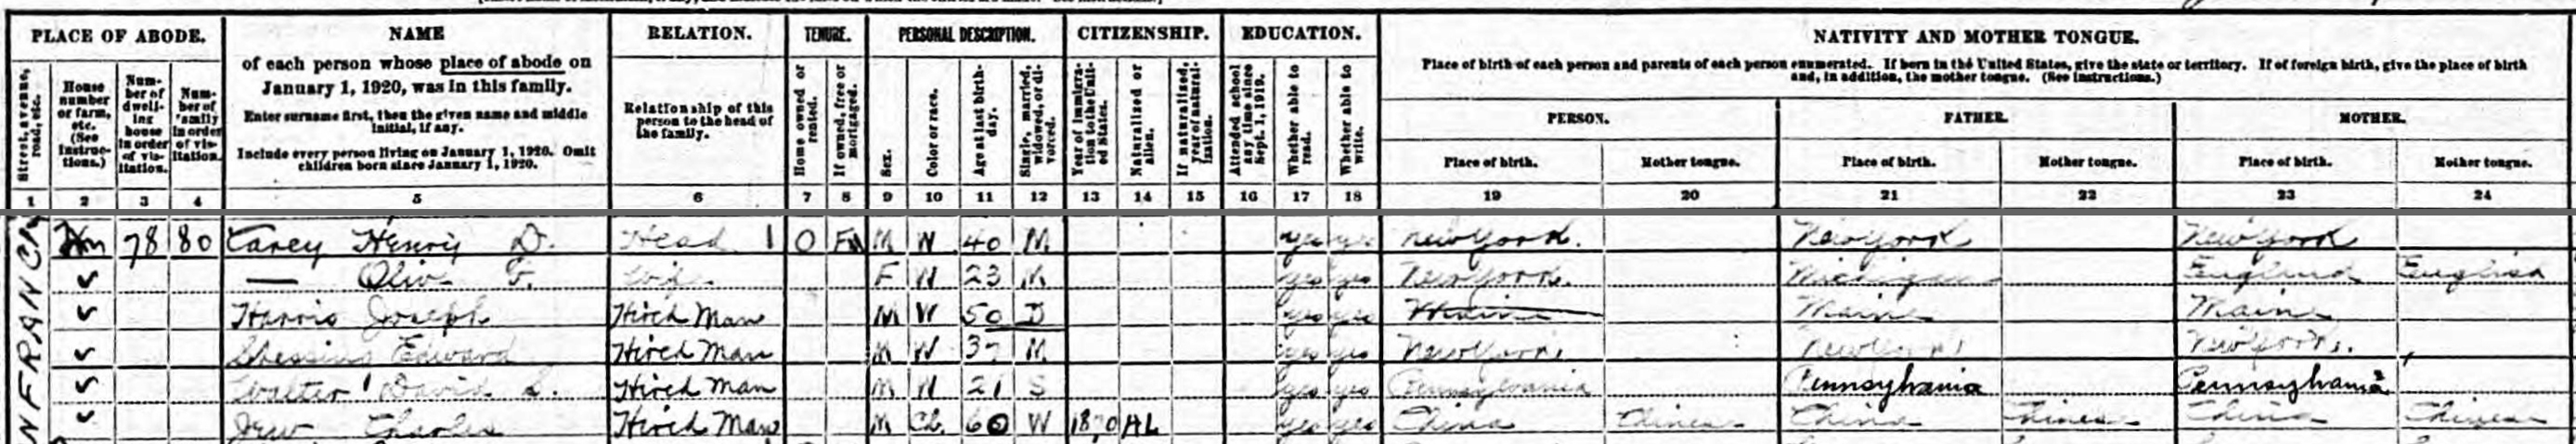 PLACE OF ABODE.
NAME
RELATION.
TENURE.
PERSONAL DESCRIPTION.
CITIZENSHIP.
EDUCATION.
NATIVITY AND MOTHER TONGUE.
Street, avenue, road, etc.
House number or farm, etc. (See instructions.)
Number of dwelling house in order of visitation.
Number of family in order of visitation.
of each person whose place of abode on
January 1, 1920, was in this family.
Enter surname first, then the given name and middle
initial, if any.
Include every person living on January 1, 1920. Omit
children born since January 1, 1920.
Relationship of this
person to the head of
the family.
Home owned or rented.
If owned, free or mortgaged.
Sex.
Color or race.
Age at last birthday.
Single, married, widowed, or divorced.
Year of immigration to the United States.
Naturalized or alien.
If naturalized, year of naturalization.
Attended school any time since Sept. 1, 1919.
Whether able to read.
Whether able to write.
Place of birth of each person and parents of each person enumerated. If born in the United States, give the state or territory. If of foreign birth, give the place of birth
and, in addition, the mother tongue. (See instructions.)
PERSON. FATHER. MOTHER.
Place of birth. Mother tongue. Place of birth. Mother tongue. Place of birth. Mother tongue.
1 2 3 4 5 6 7 8 9 10 11 12 13 14 15 16 17 18 19 20 21 22 23 24
78 80 Carey Henry D. Head 1 O M W 40 M yes yes New York. New York New York
— Olive F. Wife F W 23 M yes yes New York. Michigan England English
Harris Joseph Hired Man M W 50 D yes yes Maine Maine Maine
Edward Hired Man M W 37 M yes yes New York New York New York.
Walter David L. Hired Man M W 21 S yes yes Pennsylvania Pennsylvania Pennsylvania
Jew Charles Hired Man M Ch. 60 W 1870 AL yes yes China Chinese China Chinese China Chinese